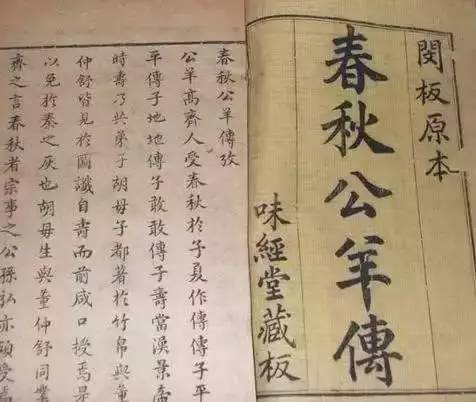 閔板原本
春秋公羊傳
味經堂藏板
春秋公羊傳攷
公羊高齊人受春秋於子夏作傳傳子平
平傳子地地傳子敢敢傳子壽當漢景帝
時壽乃共弟子胡母子都著於竹帛與董
仲舒皆見於圖讖自壽而前咸口授焉是
以免於秦之灰也胡母生與董仲舒同業
齊之言春秋者宗事之公孫弘亦頗受焉